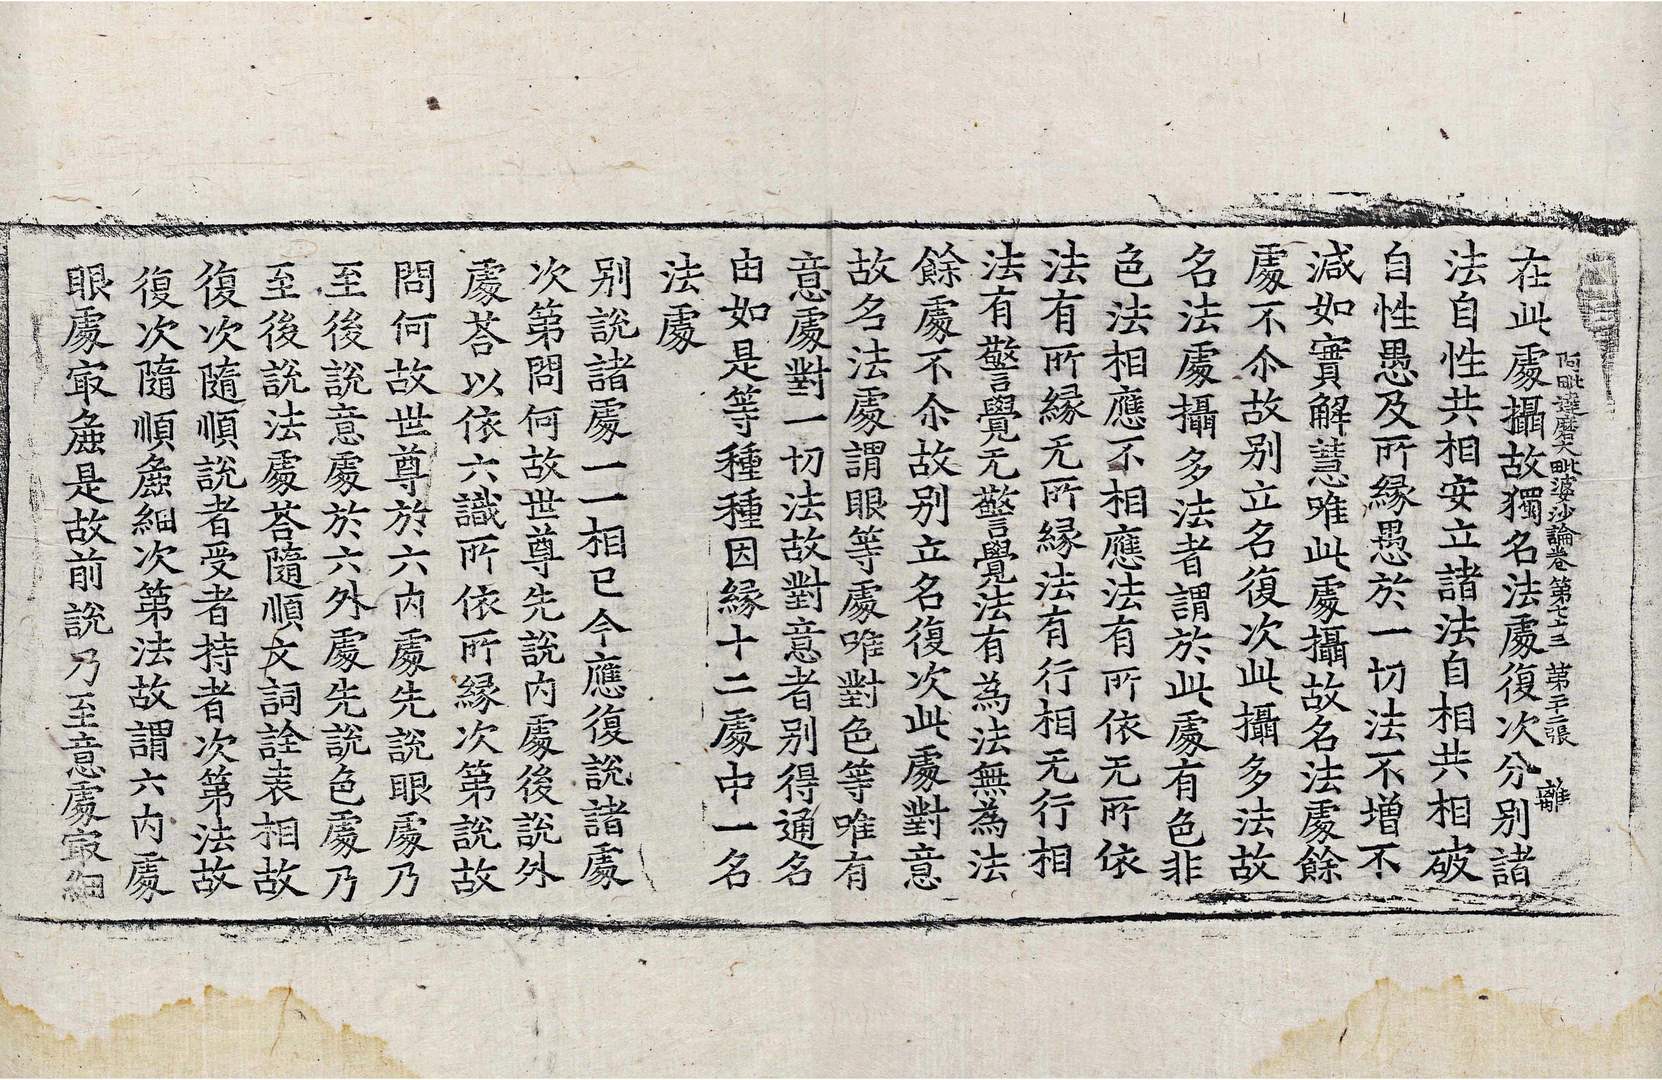 阿毗達磨大毗婆沙論卷第七十三 第二十二張 離
在此處攝故獨名法處復次分別諸
法自性共相安立諸法自相共相破
自性愚及所緣愚於一切法不增不
減如實解慧唯此處攝故名法處餘
處不尒故別立名復次此攝多法故
名法處攝多法者謂於此處有色非
色法相應不相應法有所依无所依
法有所緣无所緣法有行相无行相
法有警覺无警覺法有為法無為法
餘處不尒故別立名復次此處對意
故名法處謂眼等處唯對色等唯有
意處對一切法故對意者別得通名
由如是等種種因緣十二處中一名
法處
別說諸處一一相已今應復說諸處
次第問何故世尊先說內處後說外
處荅以依六識所依所緣次第說故
問何故世尊於六內處先說眼處乃
至後說意處於六外處先說色處乃
至後說法處荅隨順文詞詮表相故
復次隨順說者受者持者次第法故
復次隨順麁細次第法故謂六內處
眼處㝡麁是故前說乃至意處㝡細